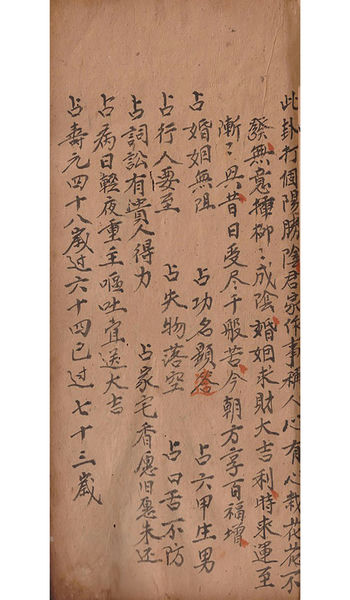 此卦打個陽勝陰君家作事稱人心有心栽花花不
發無意揷柳〻成陰婚姻求財大吉利時來運至
漸〻興昔日受尽千般苦今朝方享百福增
占婚姻無阻 占功名顯 占六甲生男
占行人要至 占失物落空 占口舌不防
占詞訟有貴人得力 占家宅香愿旧愿未还
占病日輕夜重主嘔吐宜送大吉
占壽元四十八歲过六十四已过七十三歲